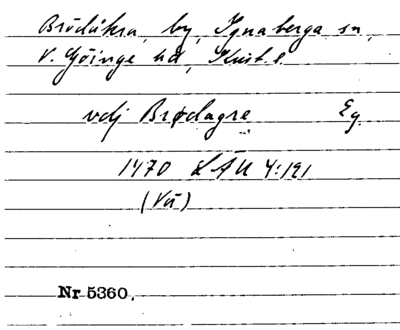 Brödåkra, by, Ignaberga sn,
V. Göinge hd, Krist. l.
vdj Brødagre Eg.
1470 LÄU 4:191
(Vä)
Nr 5360.